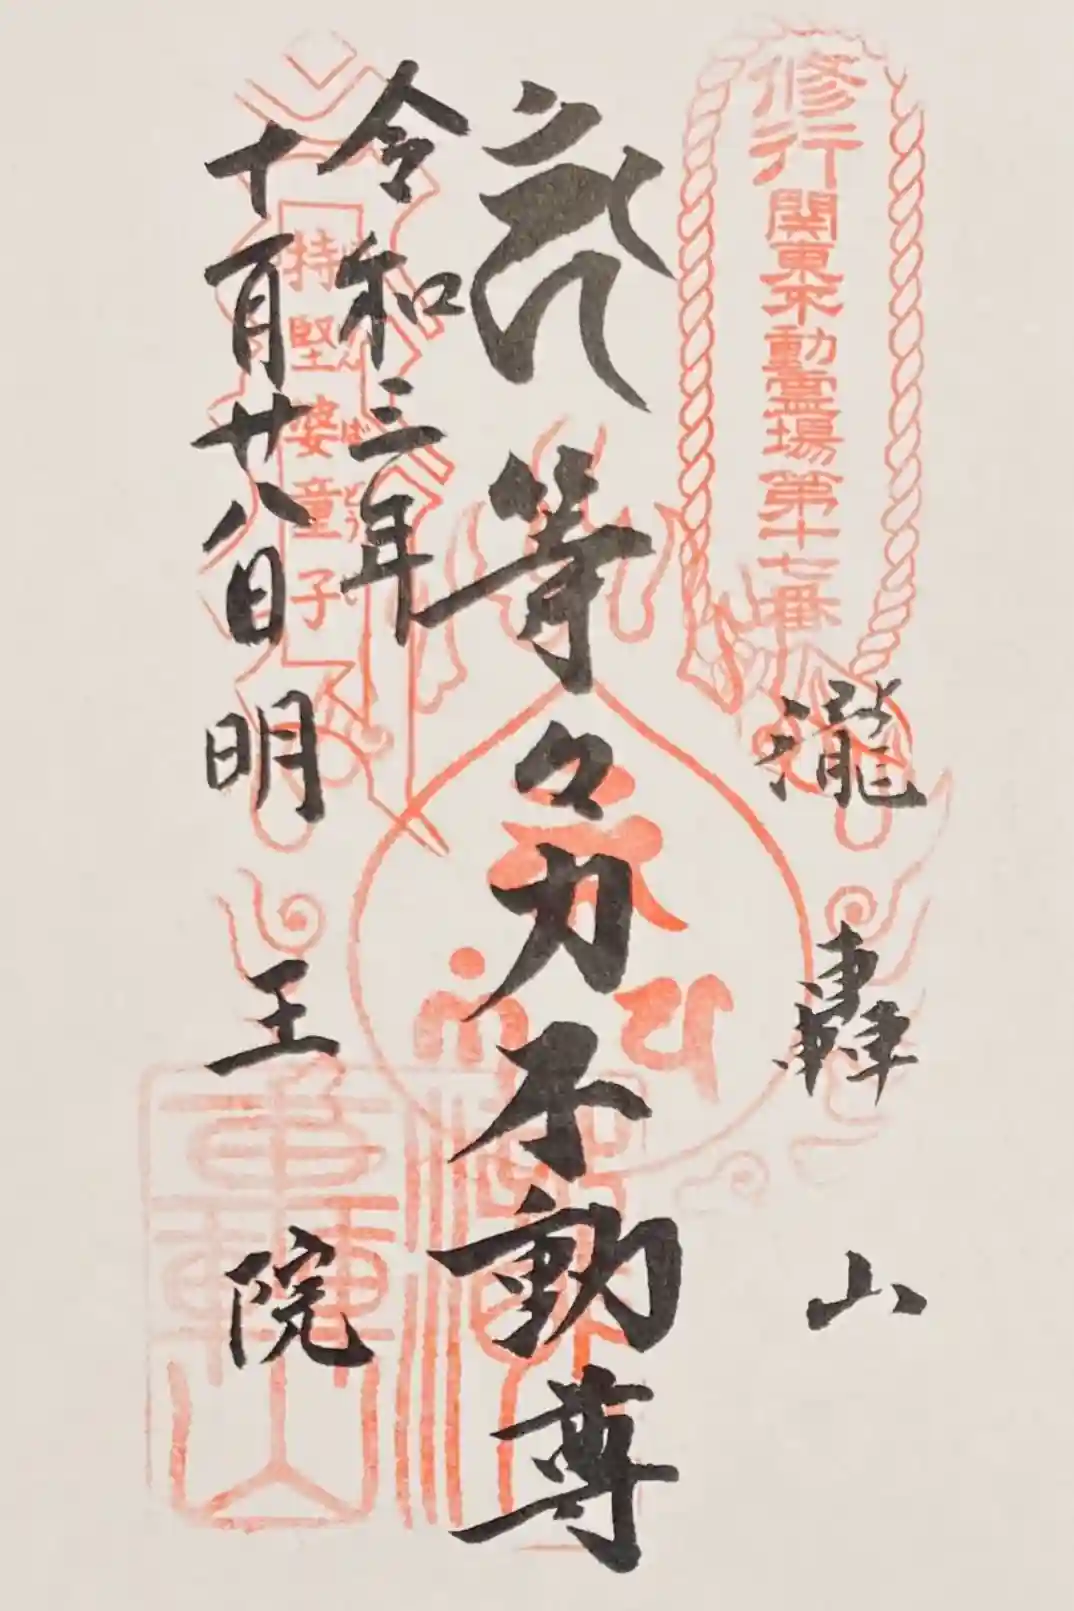 修行関東不動霊場第十七番
瀧轟山
等々力不動尊
令和三年
十月廿八日
持堅婆童子
明王院